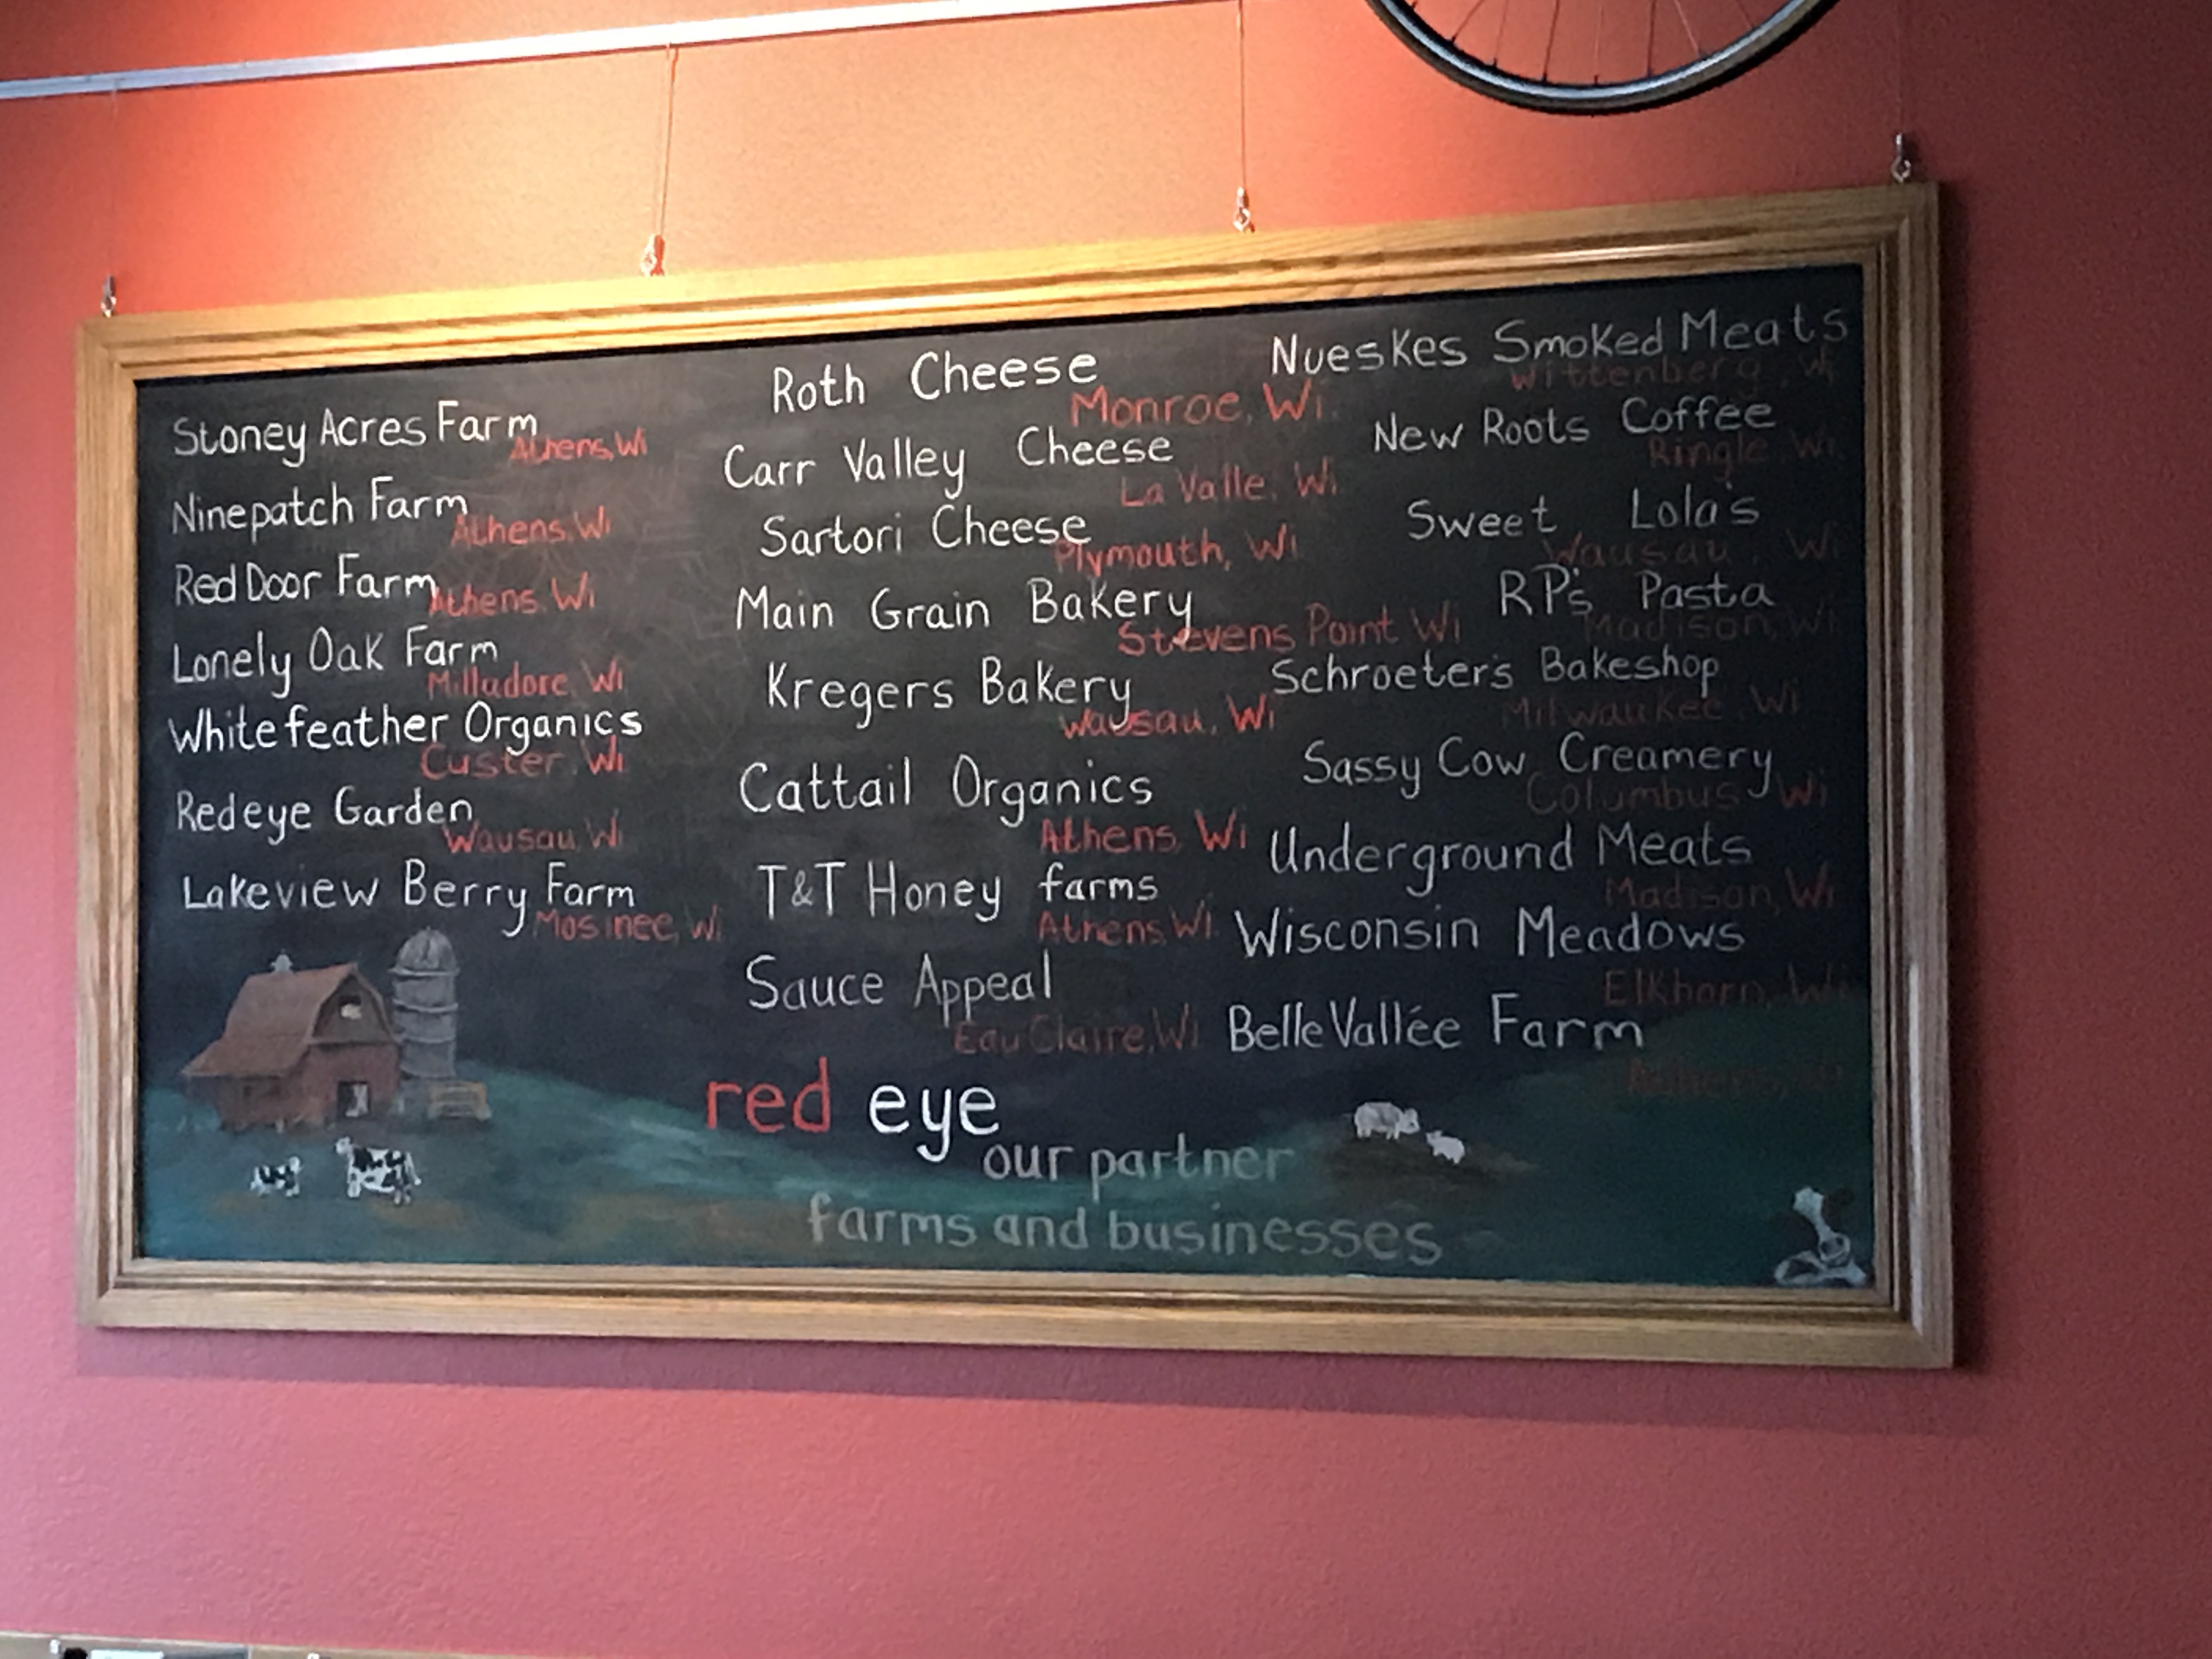 Stoney Acres Farm
Athens, Wi
Ninepatch Farm
Athens, Wi
Red Door Farm
Athens, Wi
Lonely Oak Farm
Milladore, Wi
Whitefeather Organics
Custer, Wi
Redeye Garden
Wausau, Wi
Lakeview Berry Farm
Mosinee, Wi
Roth Cheese
Monroe, Wi.
Carr Valley Cheese
La Valle, Wi.
Sartori Cheese
Plymouth, Wi.
Main Grain Bakery
Stevens Point Wi
Kregers Bakery
Wausau, Wi
Cattail Organics
Athens, Wi
T&T Honey farms
Athens, Wi.
Sauce Appeal
Eau Claire, Wi
Nueskes Smoked Meats
Wittenberg, Wi
New Roots Coffee
Ringle Wi.
Sweet Lola's
Wausau, Wi
RP's Pasta
Madison, Wi
Schroeter's Bakeshop
Milwaukee, Wi
Sassy Cow Creamery
Columbus, Wi
Underground Meats
Madison, Wi
Wisconsin Meadows
Elkhorn, Wi
Belle Vallée Farm
Athens, Wi
red eye
our partner
farms and businesses